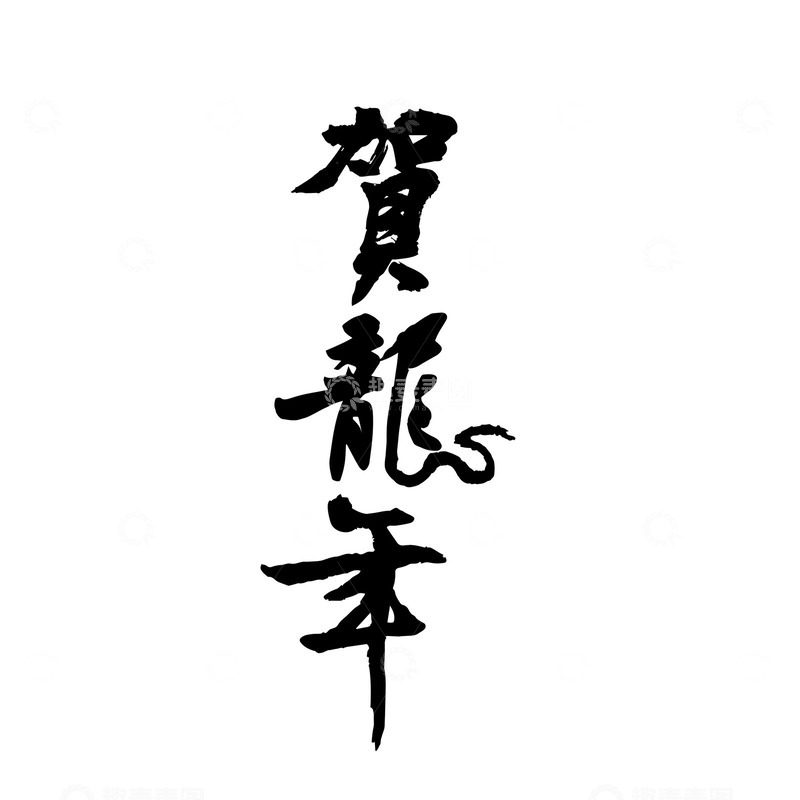 賀龍年